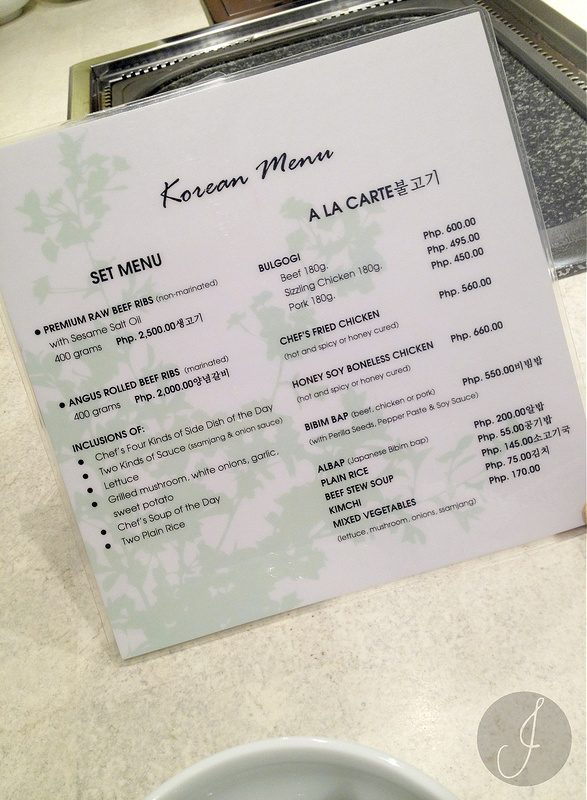 Korean Menu
SET MENU
● PREMIUM RAW BEEF RIBS (non-marinated)
with Sesame Salt Oil
400 grams Php. 2,500.00생고기
● ANGUS ROLLED BEEF RIBS (marinated)
400 grams Php. 2,000.00양념갈비
INCLUSIONS OF:
● Chef's Four Kinds of Side Dish of the Day
● Two Kinds of Sauce (ssamjang & onion sauce)
● Lettuce
● Grilled mushroom, white onions, garlic,
sweet potato
● Chef's Soup of the Day
● Two Plain Rice
A LA CARTE불고기
BULGOGI
Beef 180g. Php. 600.00
Sizzling Chicken 180g. Php. 495.00
Pork 180g. Php. 450.00
CHEF'S FRIED CHICKEN Php. 560.00
(hot and spicy or honey cured)
HONEY SOY BONELESS CHICKEN Php. 660.00
(hot and spicy or honey cured)
BIBIM BAP (beef, chicken or pork) Php. 550.00비빔밥
(with Perilla Seeds, Pepper Paste & Soy Sauce)
ALBAP (Japanese Bibim bap) Php. 200.00알밥
PLAIN RICE Php. 55.00공기밥
BEEF STEW SOUP Php. 145.00소고기국
KIMCHI Php. 75.00김치
MIXED VEGETABLES Php. 170.00
(lettuce, mushroom, onions, ssamjang)
J